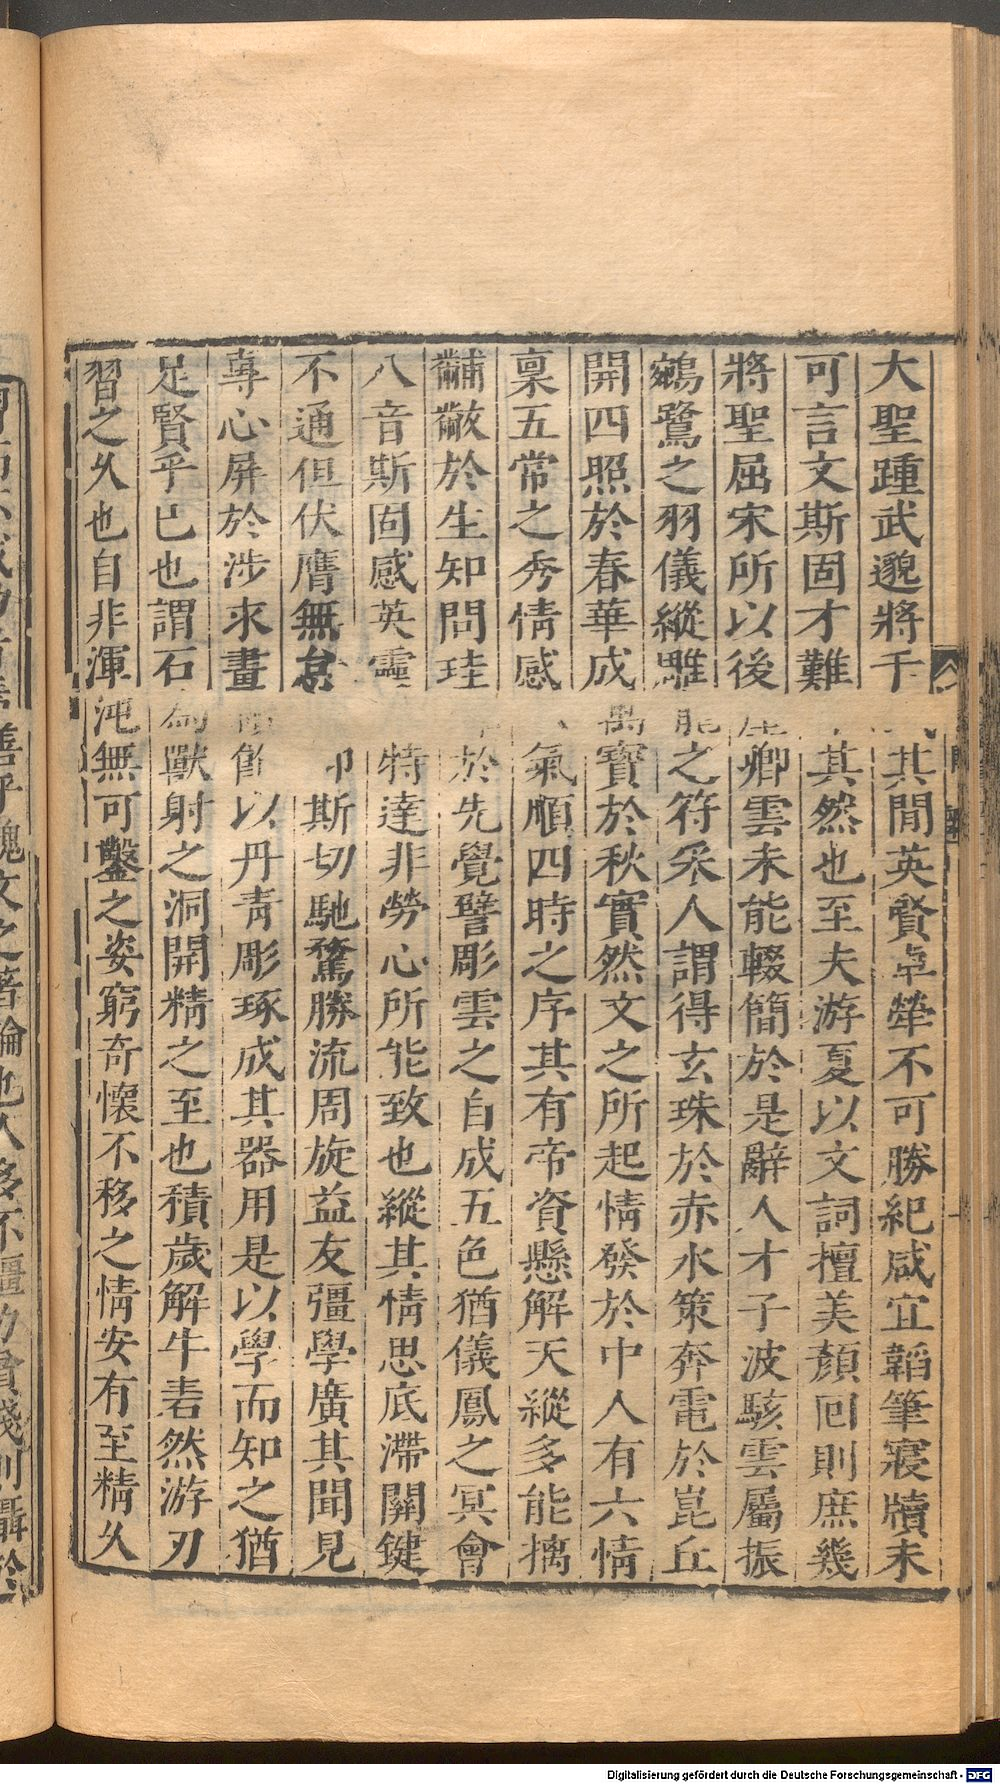 大聖踵武邈將千其閒英賢卓犖不可勝紀咸宜韜筆寢牘未
可言文斯固才難其然也至夫游夏以文詞擅美顏回則庶幾
將聖屈宋所以後塵卿雲未能輟簡於是辭人才子波駭雲屬振
鵷鷺之羽儀縱雕龍之符采人謂得玄珠於赤水策奔電於崑丘
開四照於春華成萬寶於秋實然文之所起情發於中人有六情
稟五常之秀情感六氣順四時之序其有帝資懸解天縱多能摛
黼黻於生知問珪於先覺譬彫雲之自成五色猶儀鳳之冥會
八音斯固感英靈特達非勞心所能致也縱其情思底滯關鍵
不通但伏膺無怠斯切馳騖勝流周旋益友彊學廣其聞見
專心屏於涉求畫以丹青彫琢成其器用是以學而知之猶
足賢乎已也謂石為獸射之洞開精之至也積歲解牛砉然游刃
習之久也自非渾沌無可鑿之姿窮奇懷不移之情安有至精久
Digitalisierung gefördert durch die Deutsche Forschungsgemeinschaft - DFG